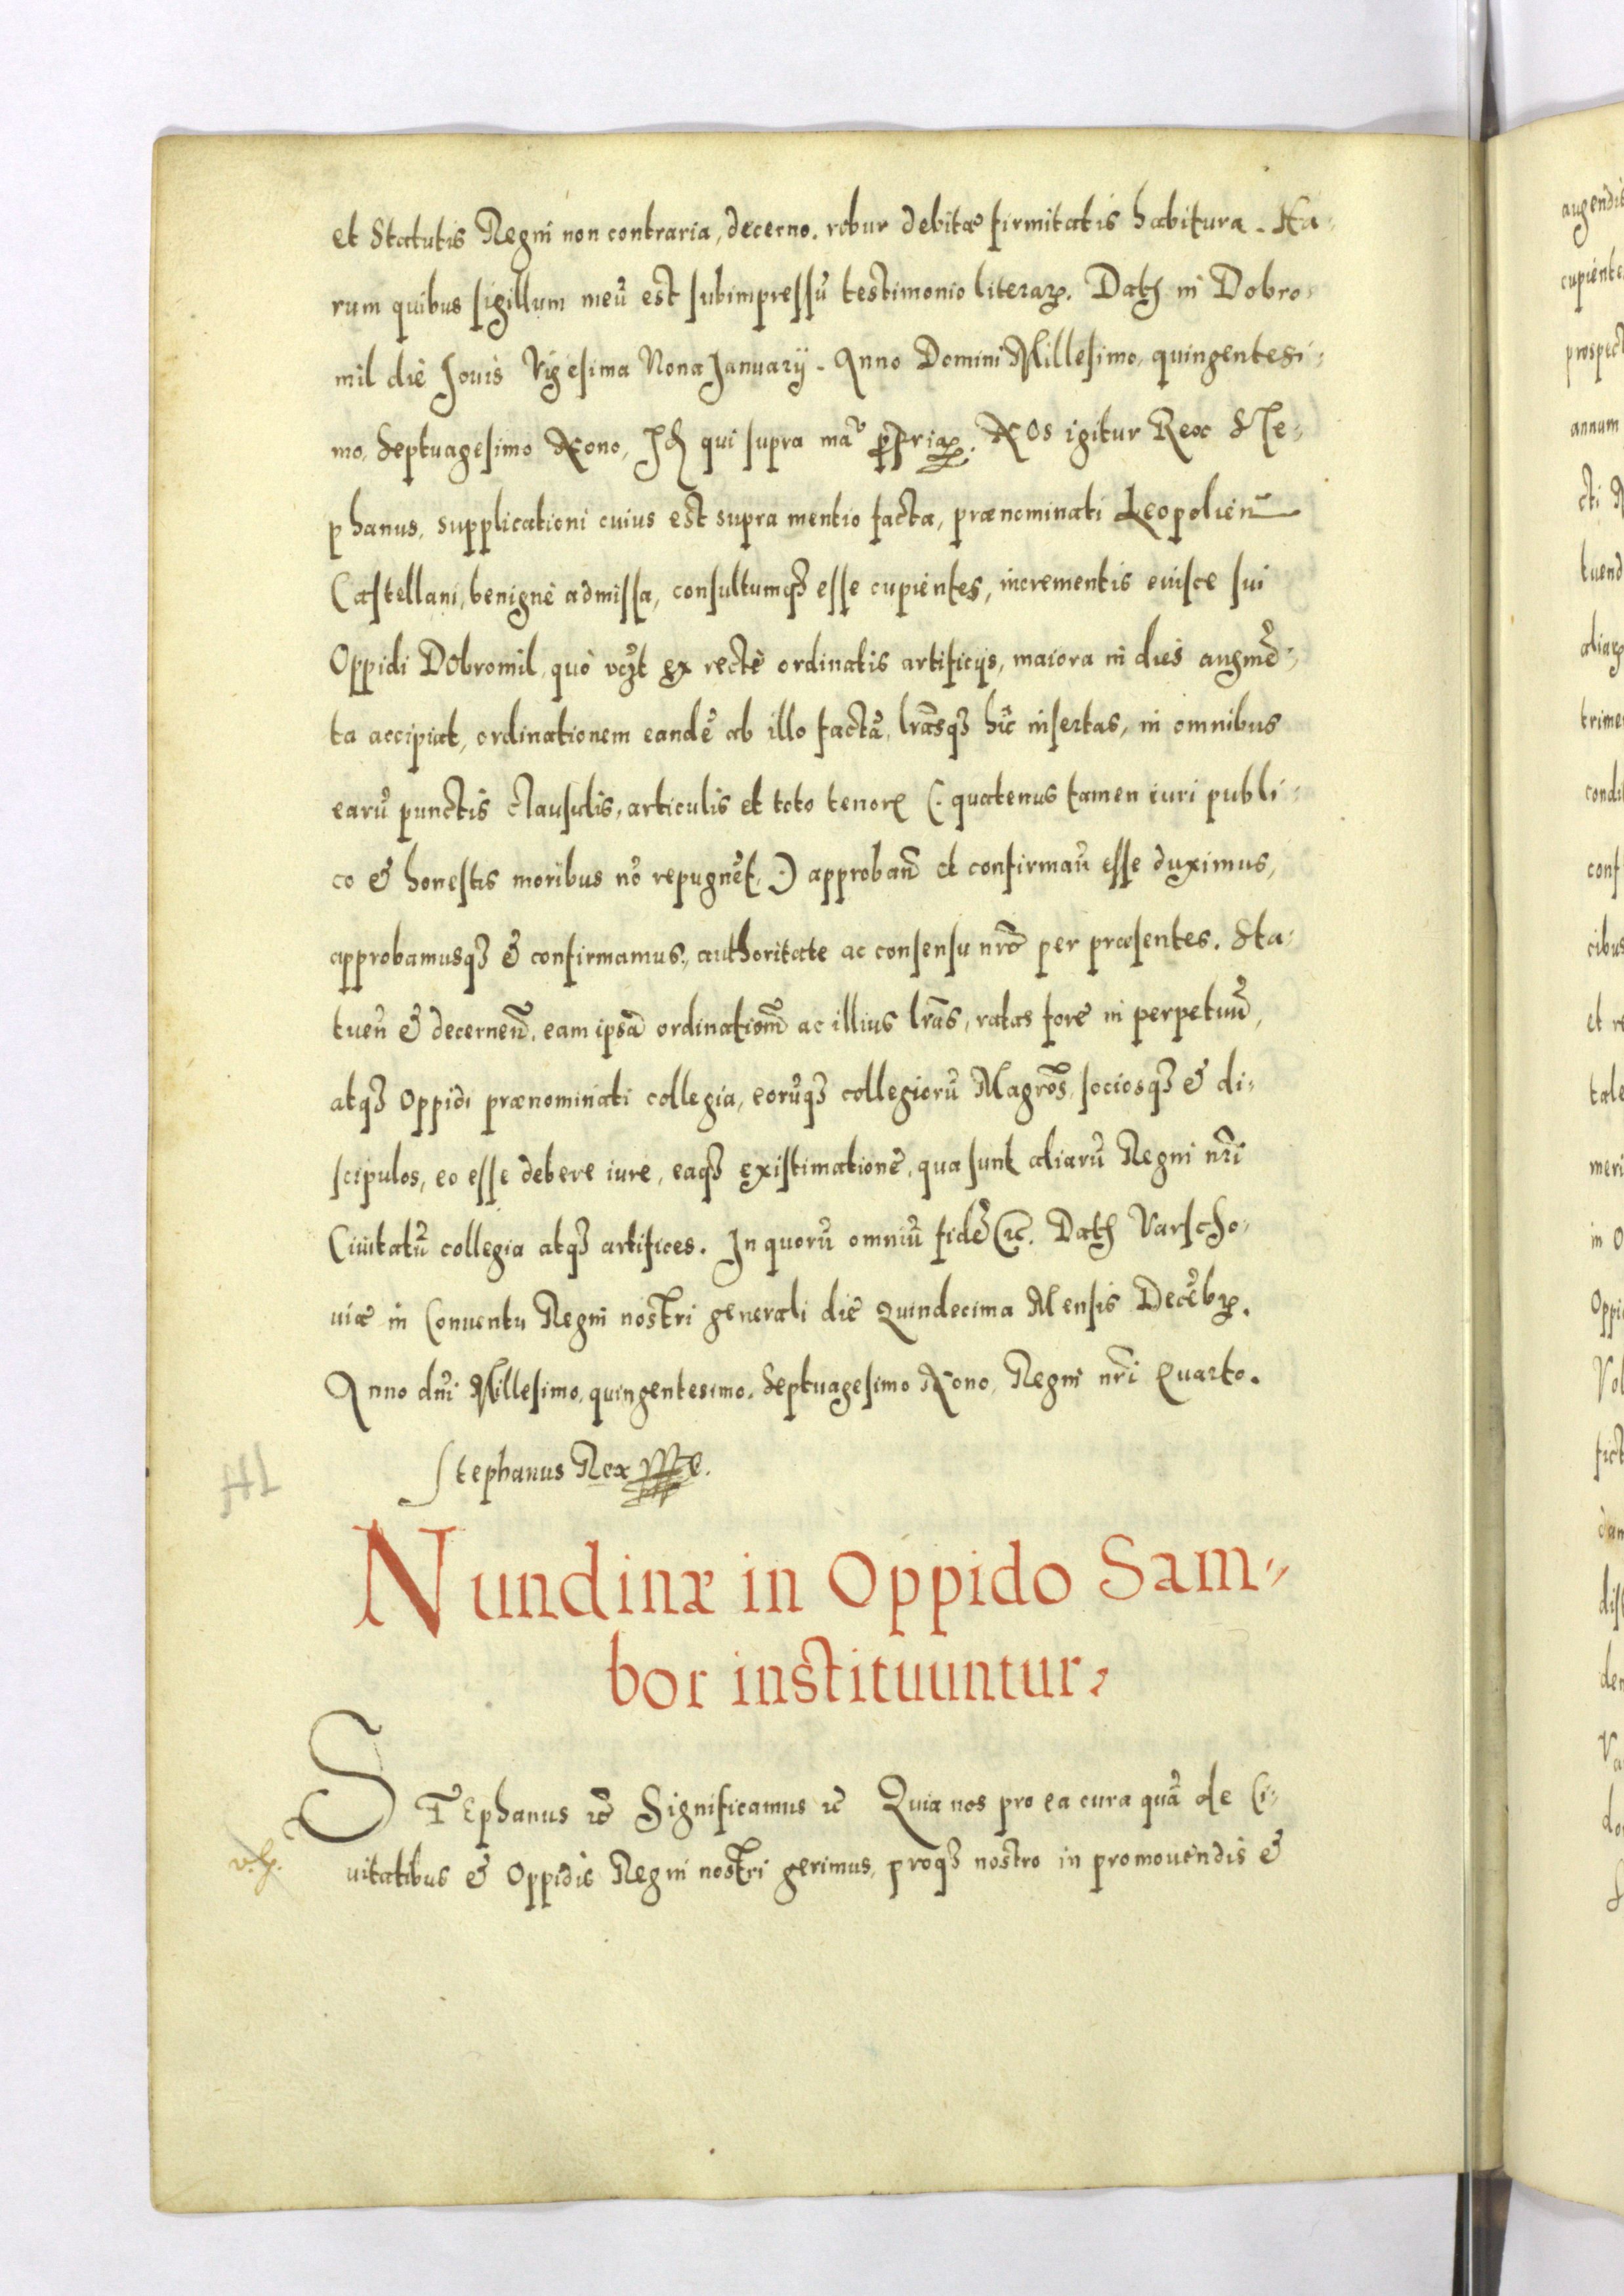 et Statutis Regni non contraria, decerno. robur debitæ firmitatis habitura. Ha-
rum quibus sigillum meũ est subimpressũ testimonio literaꝝ. Datꝭ in Dobro-
mil die Jouis Vigesima Nona Januarij. Anno Domini Millesimo, quingentesi-
mo, Septuagesimo Nono, Idꝭ qui supra mãu ꝓpriaꝝ. NOs igitur Rex Ste-
phanus, supplicationi cuius est supra mentio facta, prænominati Leopolień
Castellani, benignè admissa, consultumqꝫ esse cupientes, incrementis eiusce sui
Oppidi DObromil, quò vꝫt ex rectè ordinatis artificijs, maiora in dies augmẽ-
ta accipiat, ordinationem eandẽ ab illo factã, lrãsqꝫ hic insertas, in omnibus
earũ punctis clausulis, articulis et toto tenore (: quatenus tamen iuri publi-
co & honestis moribus nõ repugnẽt :) approbañ et confirmañ esse duximus,
approbamusqꝫ & confirmamus, authoritate ac consensu nrõ per præsentes. Sta-
tueñ & decerneñ, eam ipsã ordinationẽ ac illius lrãs, ratas fore in perpetuũ,
atqꝫ Oppidi prænominati collegia, eorũqꝫ collegiorũ Magrõs, sociosqꝫ & di-
scipulos, eo esse debere iure, eaqꝫ existimationẽ, qua sunt aliarũ Regni nrĩ
Ciuitatũ collegia atqꝫ artifices. In quorũ omniũ fidẽ etc. Datꝭ Varscho-
uiæ in Conuentu Regni nostri generali die Quindecima Mensis Decẽbꝝ.
Anno dnĩ Millesimo, quingentesimo, Septuagesimo Nono, Regni nrĩ Quarto.
Stephanus Rex
Nundinæ in Oppido Sam-
bor instituuntur,
STEphanus etc Significamus etc Quia nos pro ea cura quã de Ci-
uitatibus & Oppidis Regni nostri gerimus, proqꝫ nostro in promouendis &